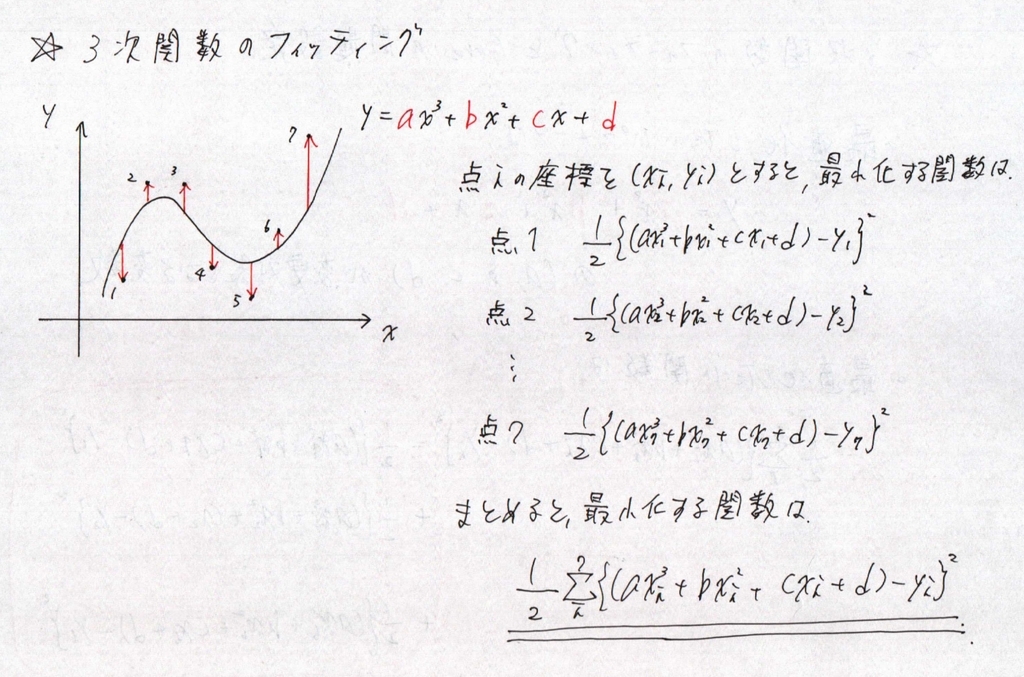 ☆ 3次関数のフィッティング
y
y = ax³ + bx² + cx + d
7
2 3
6
4
1
5
x
点iの座標を(xi, yi)とすると, 最小化する関数は
点1 1/2{(ax₁³+bx₁²+cx₁+d)-y₁}²
点2 1/2{(ax₂³+bx₂²+cx₂+d)-y₂}²
⋮
点7 1/2{(ax₇³+bx₇²+cx₇+d)-y₇}²
まとめると, 最小化する関数は
1/2 Σ_i^7 {(axᵢ³+bxᵢ²+cxᵢ+d)-yᵢ}²